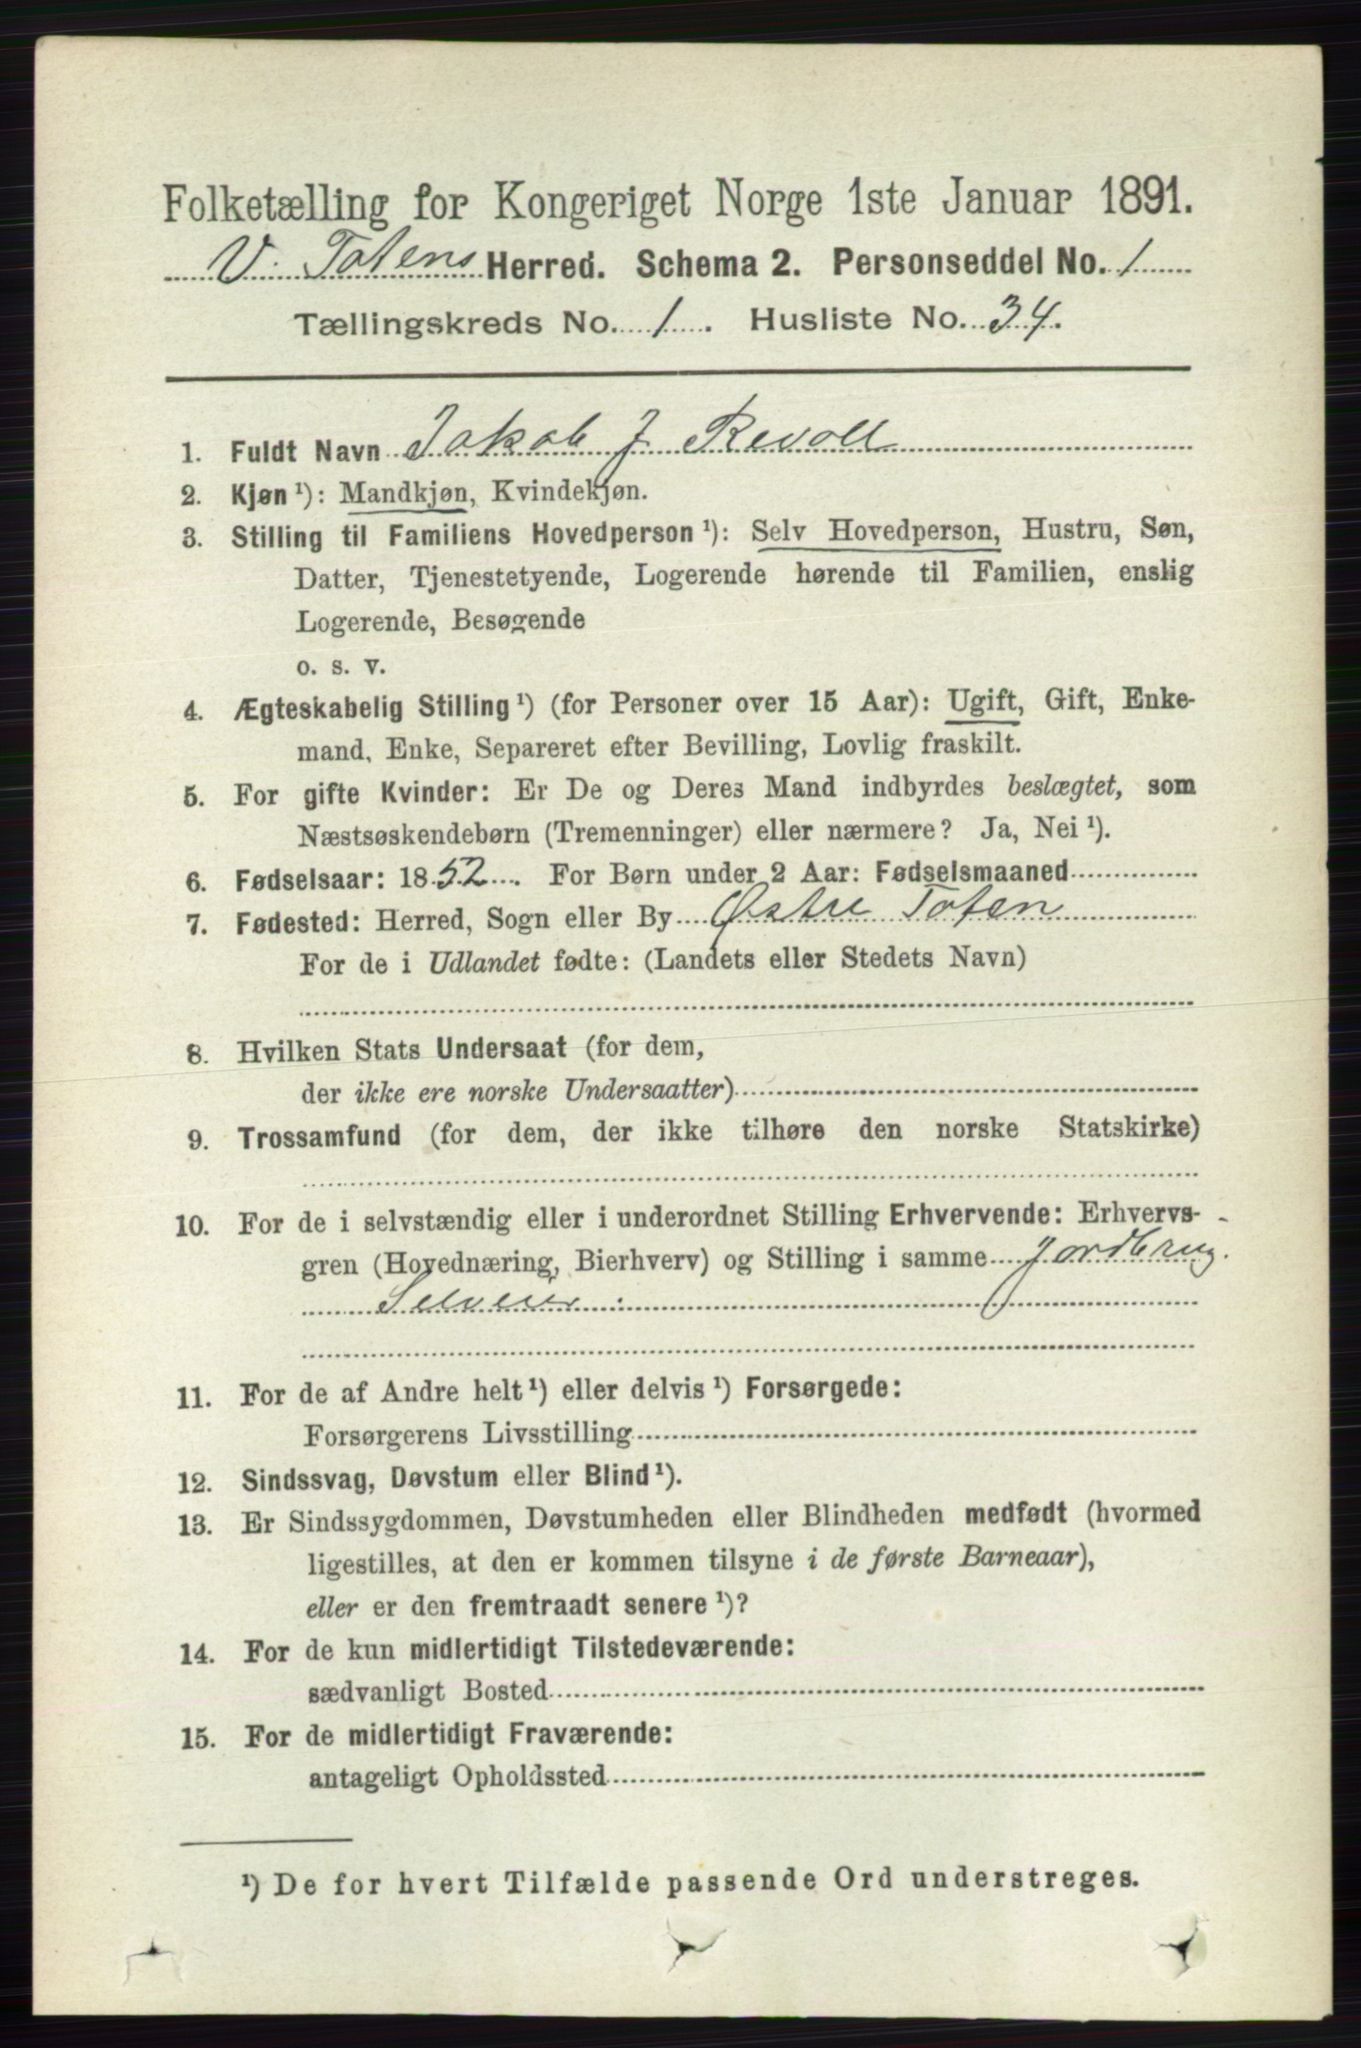 Folketælling for Kongeriget Norge 1ste Januar 1891.
V. Totens Herred. Schema 2. Personseddel No. 1
Tællingskreds No. 1. Husliste No. 34.
1. Fuldt Navn Jakob J Revoll
2. Kjøn ¹): Mandkjøn, Kvindekjøn.
3. Stilling til Familiens Hovedperson ¹): Selv Hovedperson, Hustru, Søn,
Datter, Tjenestetyende, Logerende hørende til Familien, enslig
Logerende, Besøgende
o. s. v.
4. Ægteskabelig Stilling ¹) (for Personer over 15 Aar): Ugift, Gift, Enke-
mand, Enke, Separeret efter Bevilling, Lovlig fraskilt.
5. For gifte Kvinder: Er De og Deres Mand indbyrdes beslægtet, som
Næstsøskendebørn (Tremenninger) eller nærmere? Ja, Nei ¹).
6. Fødselsaar: 1852. For Børn under 2 Aar: Fødselsmaaned
7. Fødested: Herred, Sogn eller By Østre Toten
For de i Udlandet fødte: (Landets eller Stedets Navn)
8. Hvilken Stats Undersaat (for dem,
der ikke ere norske Undersaatter)
9. Trossamfund (for dem, der ikke tilhøre den norske Statskirke)
10. For de i selvstændig eller i underordnet Stilling Erhvervende: Erhvervs-
gren (Hovednæring, Bierhverv) og Stilling i samme Jordbrug.
Selveier
11. For de af Andre helt ¹) eller delvis ¹) Forsørgede:
Forsørgerens Livsstilling
12. Sindssvag, Døvstum eller Blind ¹).
13. Er Sindssygdommen, Døvstumheden eller Blindheden medfødt (hvormed
ligestilles, at den er kommen tilsyne i de første Barneaar),
eller er den fremtraadt senere ¹)?
14. For de kun midlertidigt Tilstedeværende:
sædvanligt Bosted
15. For de midlertidigt Fraværende:
antageligt Opholdssted
¹) De for hvert Tilfælde passende Ord understreges.